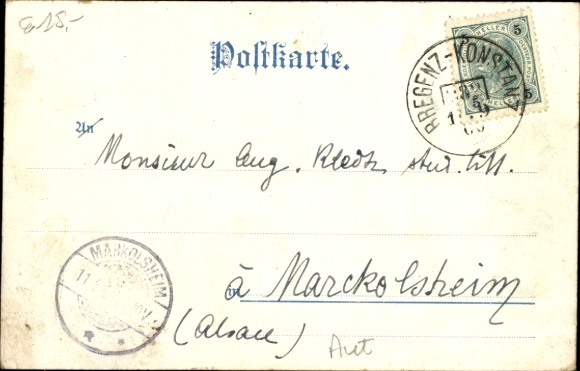 815.-
Postkarte.
5 HELLER 5
BREGENZ-KONSTANZ
An Monsieur Aug. stud. litt.
MARKOLSHEIM
11
in à Marckolsheim
(Alsace)
Aut